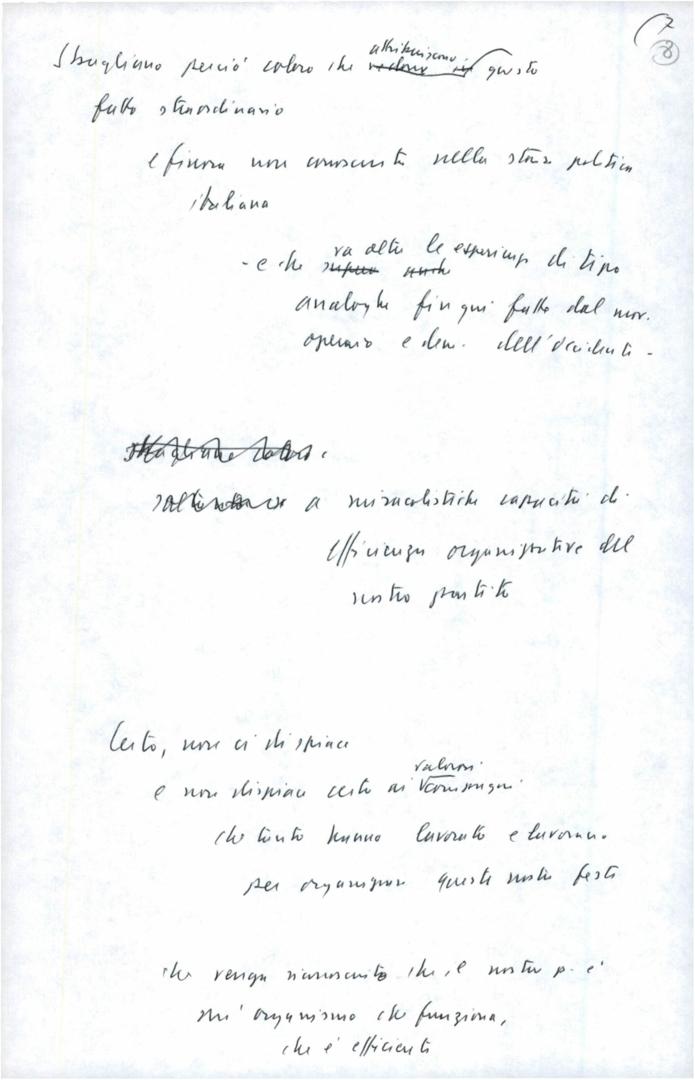 7
8
Sbagliano perciò coloro che attribuiscono questo
fatto straordinario
e finora non conosciuto nella storia politica
italiana
- e che va oltre le esperienze di tipo
analoghe fin qui fatte dal mov.
operaio e dem. dell'occidente -
sbagliano coloro
a miracolistiche capacità di
efficienza organizzative del
nostro partito
Certo, non ci dispiace
e non dispiace certo ai valorosi compagni
che tanto hanno lavorato e lavorano
per organizzare queste nostre feste
che venga riconosciuto che il nostro p. è
un'organismo che funziona,
che è efficiente